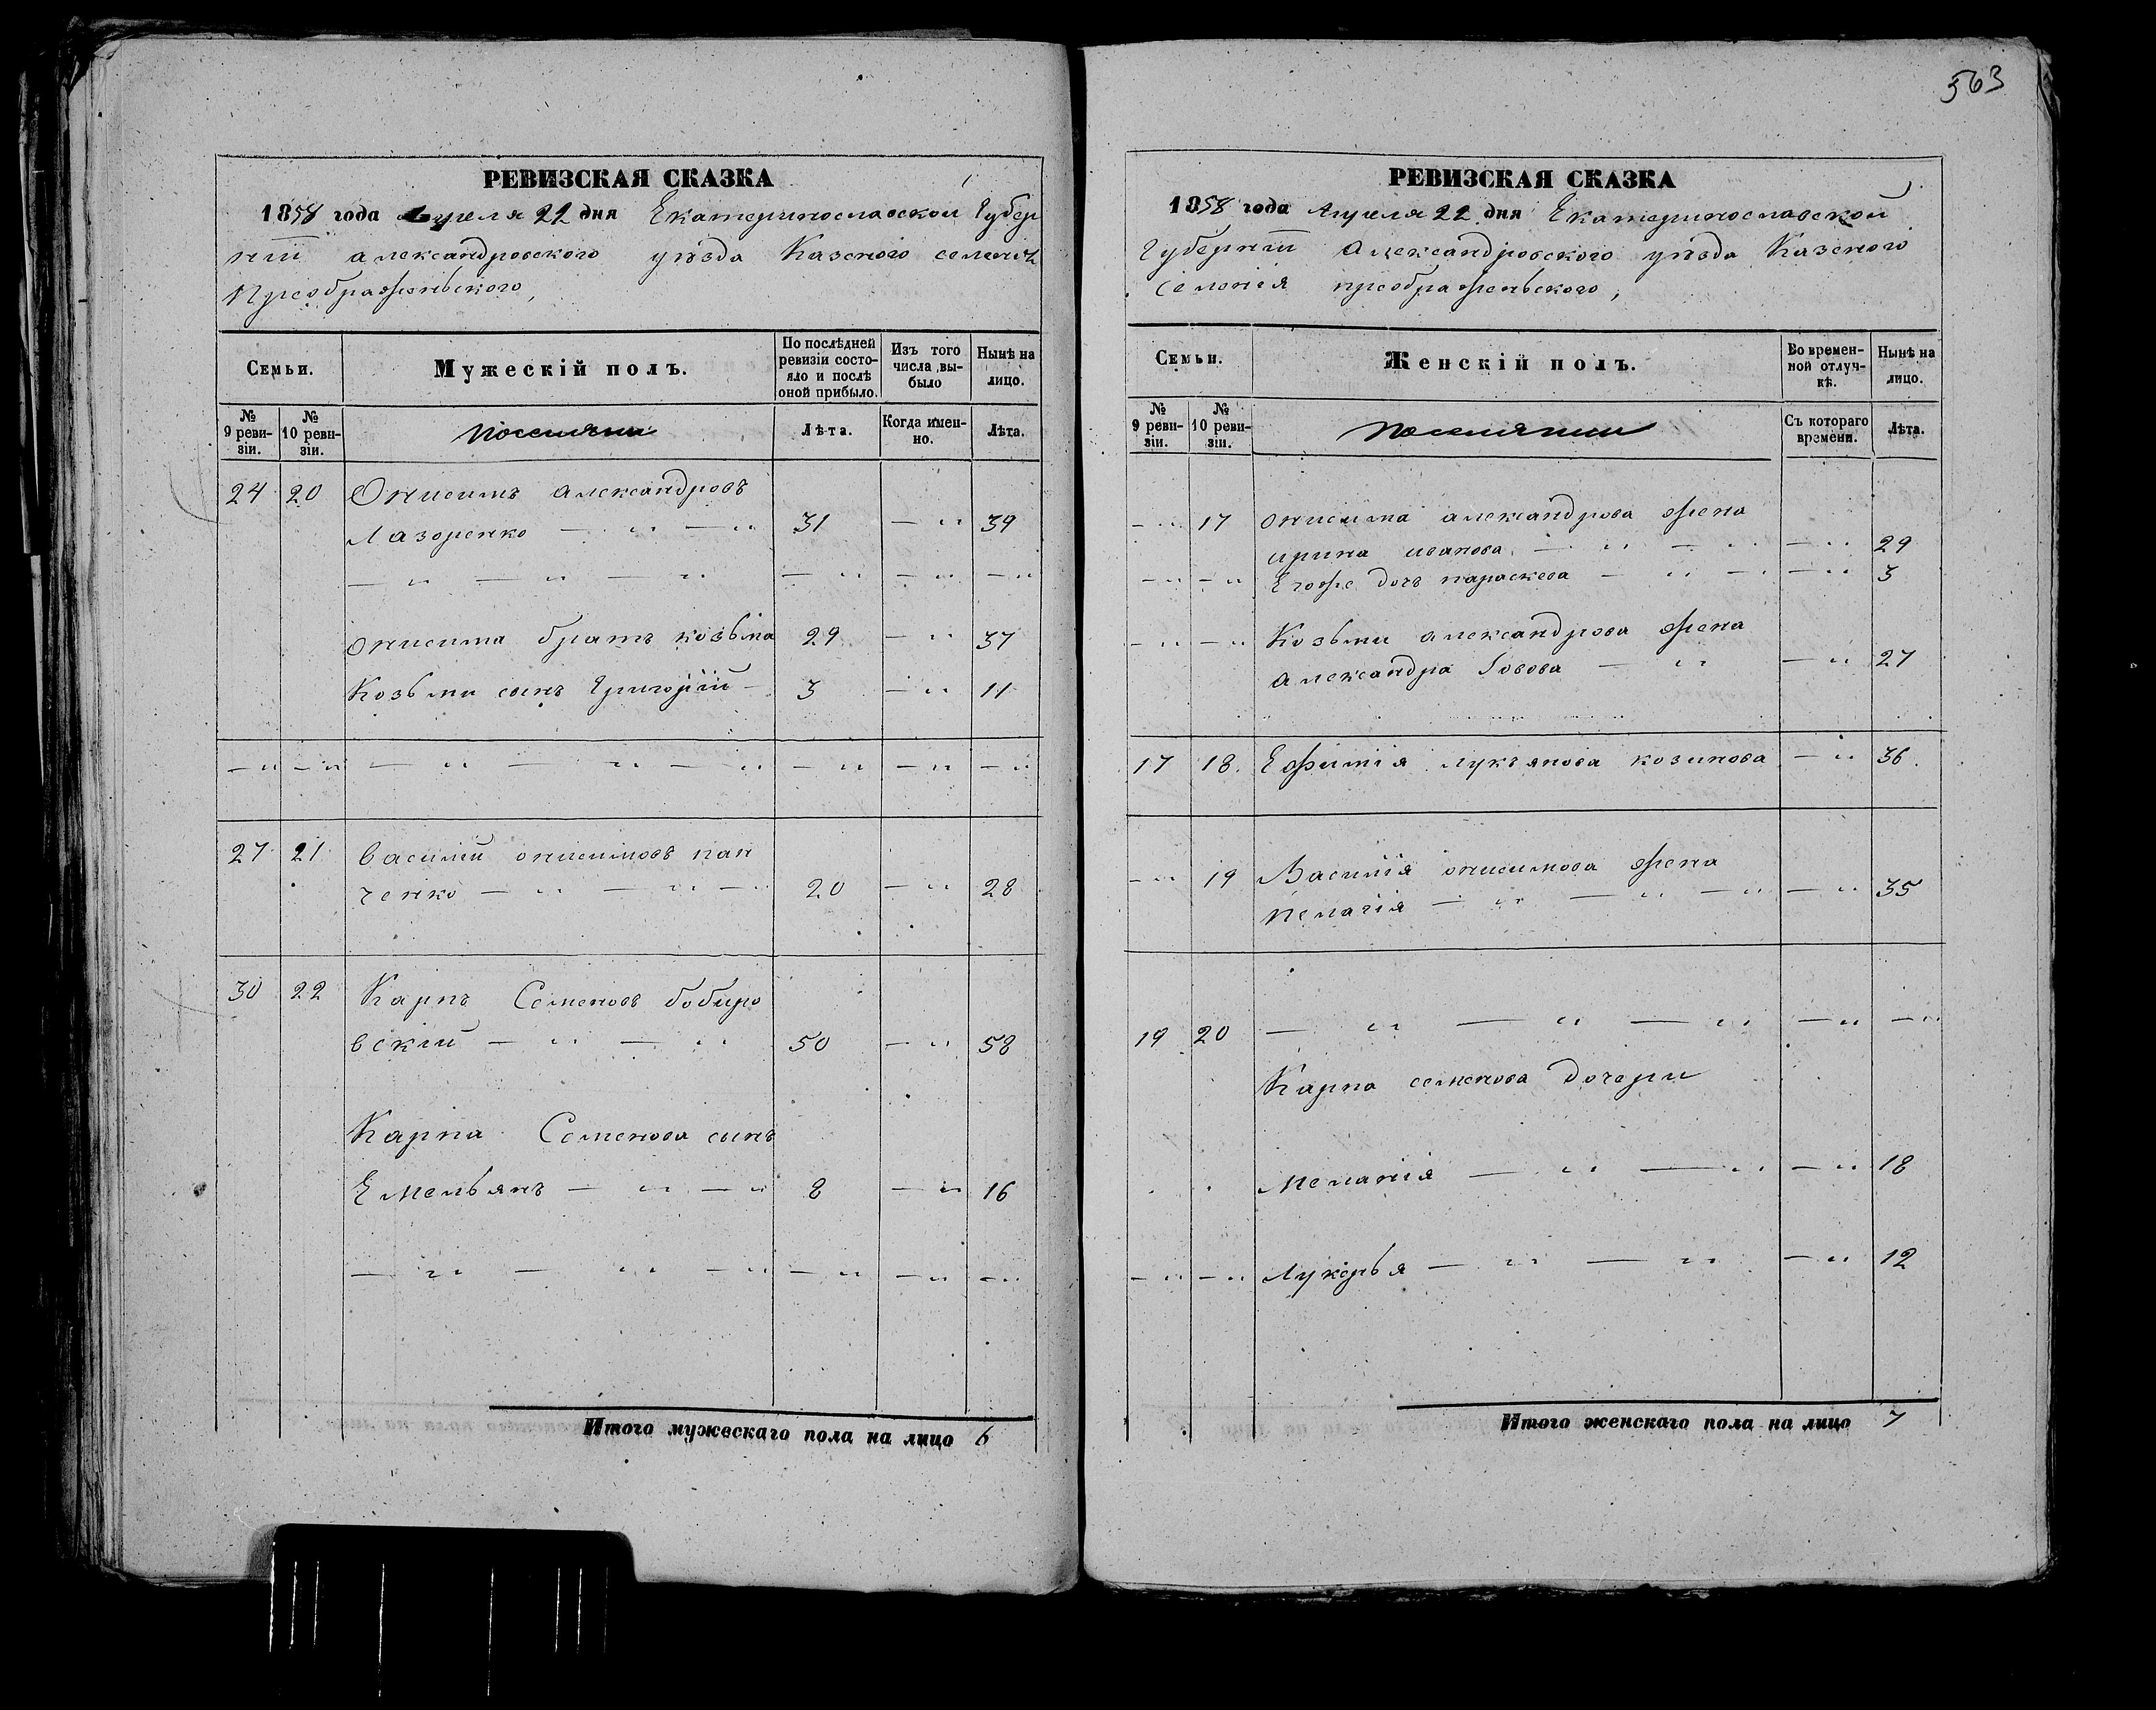 563
РЕВИЗСКАЯ СКАЗКА
1858 года Апреля 22 дня Екатеринославской Губер
нiи александровского уѣзда Казеного селенія
Преображеньского,
Семьи.
Мужескій полъ.
По послѣдней ревизіи состо-
яло и послѣ
оной прибыло.
Изъ того
числа вы-
было
Нынѣ на
лицо.
№
9 реви-
зіи.
№
10 реви-
зіи.
поселяни
Лѣта.
Когда имен-
но.
Лѣта.
24 20 Онисимъ александровъ
Лазоренко — " — " 31 — " 39
— " — " — " — " — " — "
онисима братъ козьма 29 — " 37
Козьми сынъ Григорій — 3 — " 11
— " — " — " — " — " — " — " — "
27 21 Василий онисимовъ пан
ченко — " — " — " 20 — " 28
30 22 Карпъ Семеновъ бобиро
вскій — " — " 50 — " 58
Карпа Семенова сынъ
Емельянъ — " — " 8 — " 16
— " — " — " — " — " — "
Итого мужескаго пола на лицо 6
РЕВИЗСКАЯ СКАЗКА
1858 года Апреля 22 дня Екатеринославской
Губернiи Александровского уѣзда Казеного
Селенія преображеньского,
Семьи.
Женскій полъ.
Во времен-
ной отлуч-
кѣ.
Нынѣ на
лицо.
№
9 реви-
зіи.
№
10 реви-
зіи.
поселянии
Съ котораго
времени.
Лѣта.
— " 17 онисима александрова жена
ирина иванова — " — " — " 29
— " — " Егоже дочъ параскева — " — " — " 3
— " — " Козьми александрова жена
александра — " — " 27
17 18. Ефимія лукъянова козинова — " 36.
— " 19 Василія онисимова жена
пелагія — " — " — " — " 35
19 20 — " — " — " — " — "
Карпа семенова дочери
меланія — " — " — " 18
— " — " Лукерья — " — " — " 12
Итого женскаго пола на лицо 7